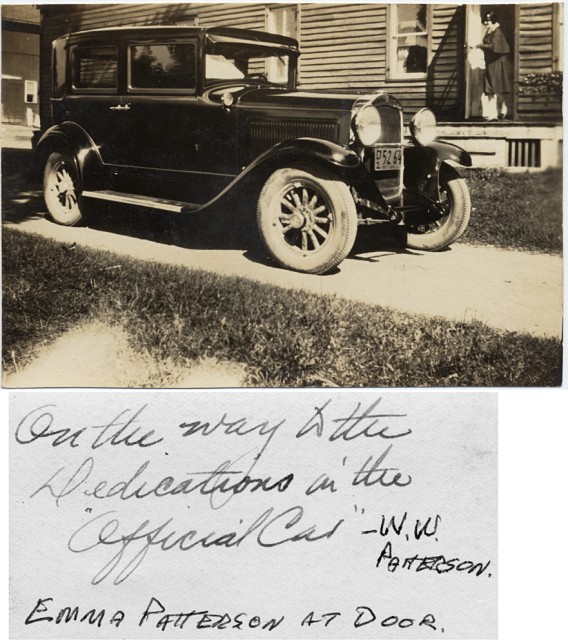 On the way to the
Dedications in the
"Official Car" - W.W.
PATTERSON.
EMMA PATTERSON AT DOOR.